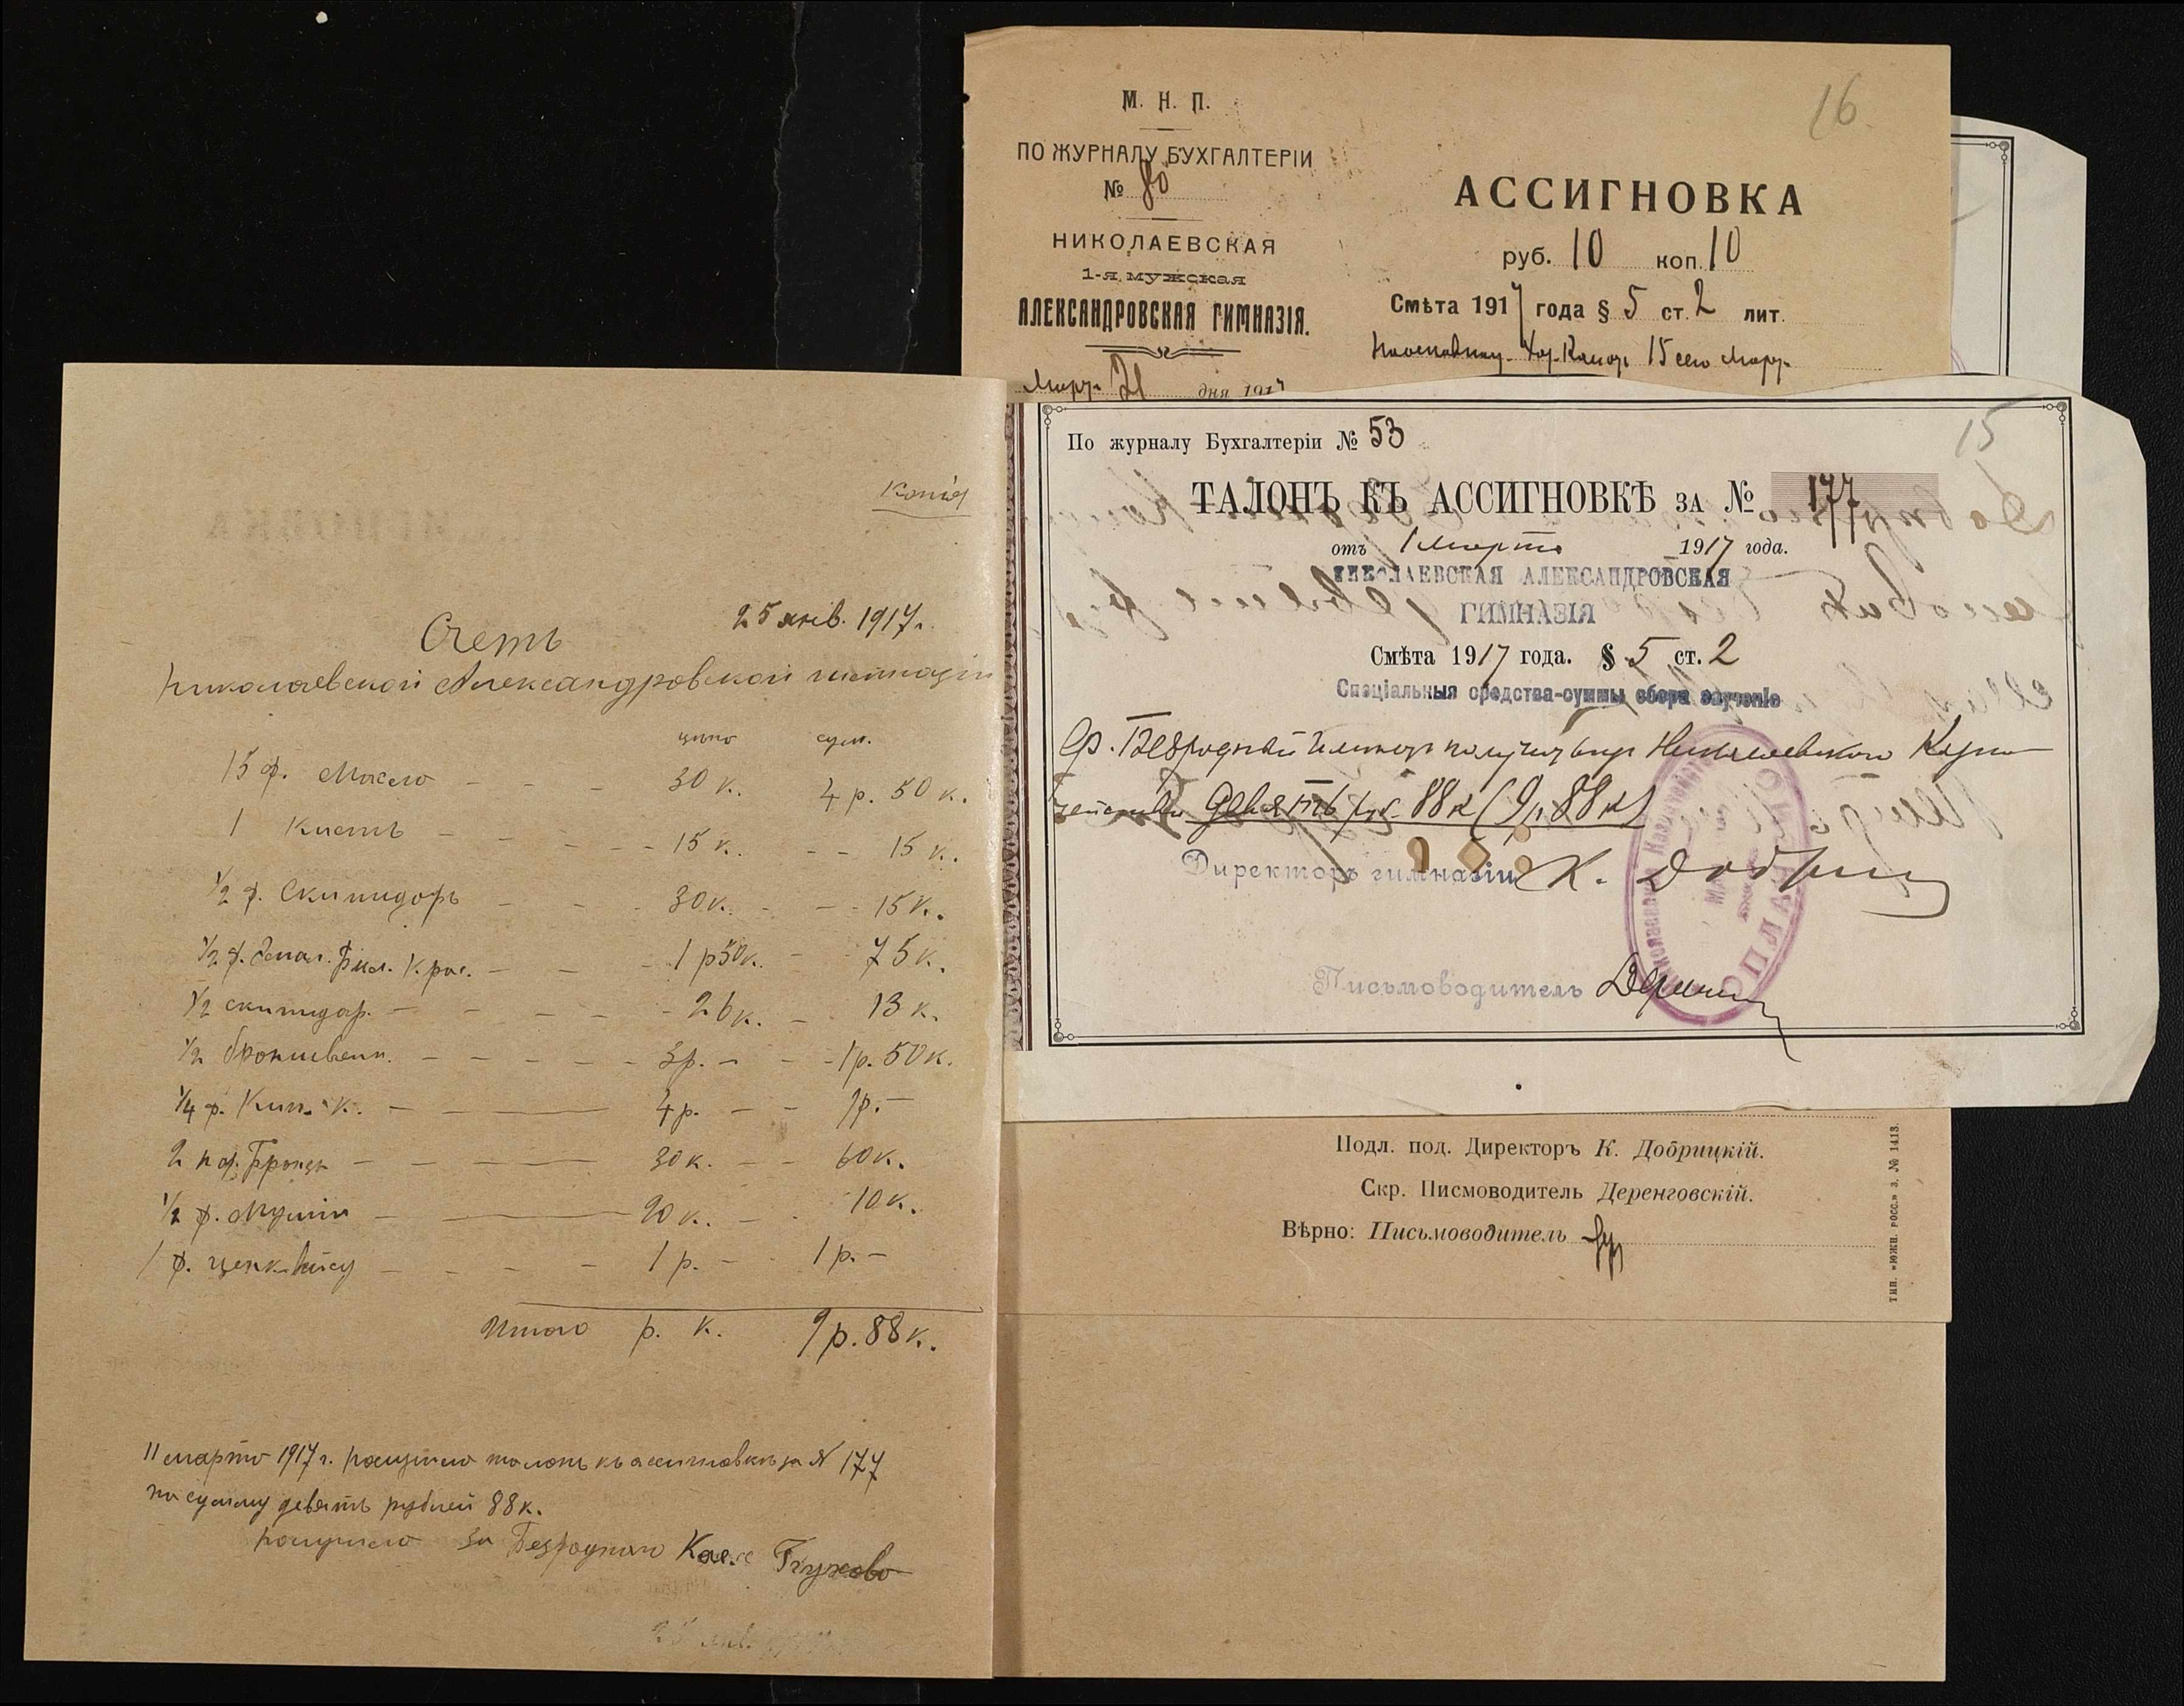 16
М. Н. П.
ПО ЖУРНАЛУ БУХГАЛТЕРІИ
№ 80
НИКОЛАЕВСКАЯ
1-я мужская
АЛЕКСАНДРОВСКАЯ ГИМНАЗІЯ.
21 дня 1917
АССИГНОВКА
руб. 10 коп. 10
Смѣта 1917 года § 5 ст. 2 лит.
15 сего
15
По журналу Бухгалтеріи № 53
ТАЛОНЪ КЪ АССИГНОВКѢ за № 177
отъ 1 марта 1917 года.
НИКОЛАЕВСКАЯ АЛЕКСАНДРОВСКАЯ
ГИМНАЗІЯ
Смѣта 1917 года. § 5 ст. 2
Спеціальныя средства-суммы сбора за ученіе
Николаевскаго Казна
чейства девять руб. 88 к (9 р. 88 к)
Директоръ гимназіи К. Добриц
Письмоводитель
Подл. под. Директоръ К. Добрицкій.
Скр. Писмоводитель Деренговскій.
Вѣрно: Письмоводитель
ТИП. «ЮЖН. РОСС.» З. № 1413.
Копія
Счетъ 25 янв. 1917 г.
Николаевской Александровской гимназіи
цѣна сум.
15 ф. Масла 30 к. 4 р. 50 к.
1 Кисть 15 к. 15 к.
1/2 ф. Скипидаръ 30 к. 15 к.
1/2 ф. Эмал. Бѣл. Крас. 1 р 50 к. 75 к.
1/2 скипидар. 26 к. 13 к.
1/2 3 р. 1 р. 50 к.
1/4 ф. Кин. к. 4 р. 1 р.
2 Бронзы 30 к. 60 к.
1/2 ф. Муміи 20 к. 10 к.
1 ф. 1 р. 1 р.
Итого р. к. 9 р. 88 к.
11 марта 1917 г. получилъ талонъ къ ассигновкѣ за № 177
на сумму девять рублей 88 к.
получилъ за Безроднаго